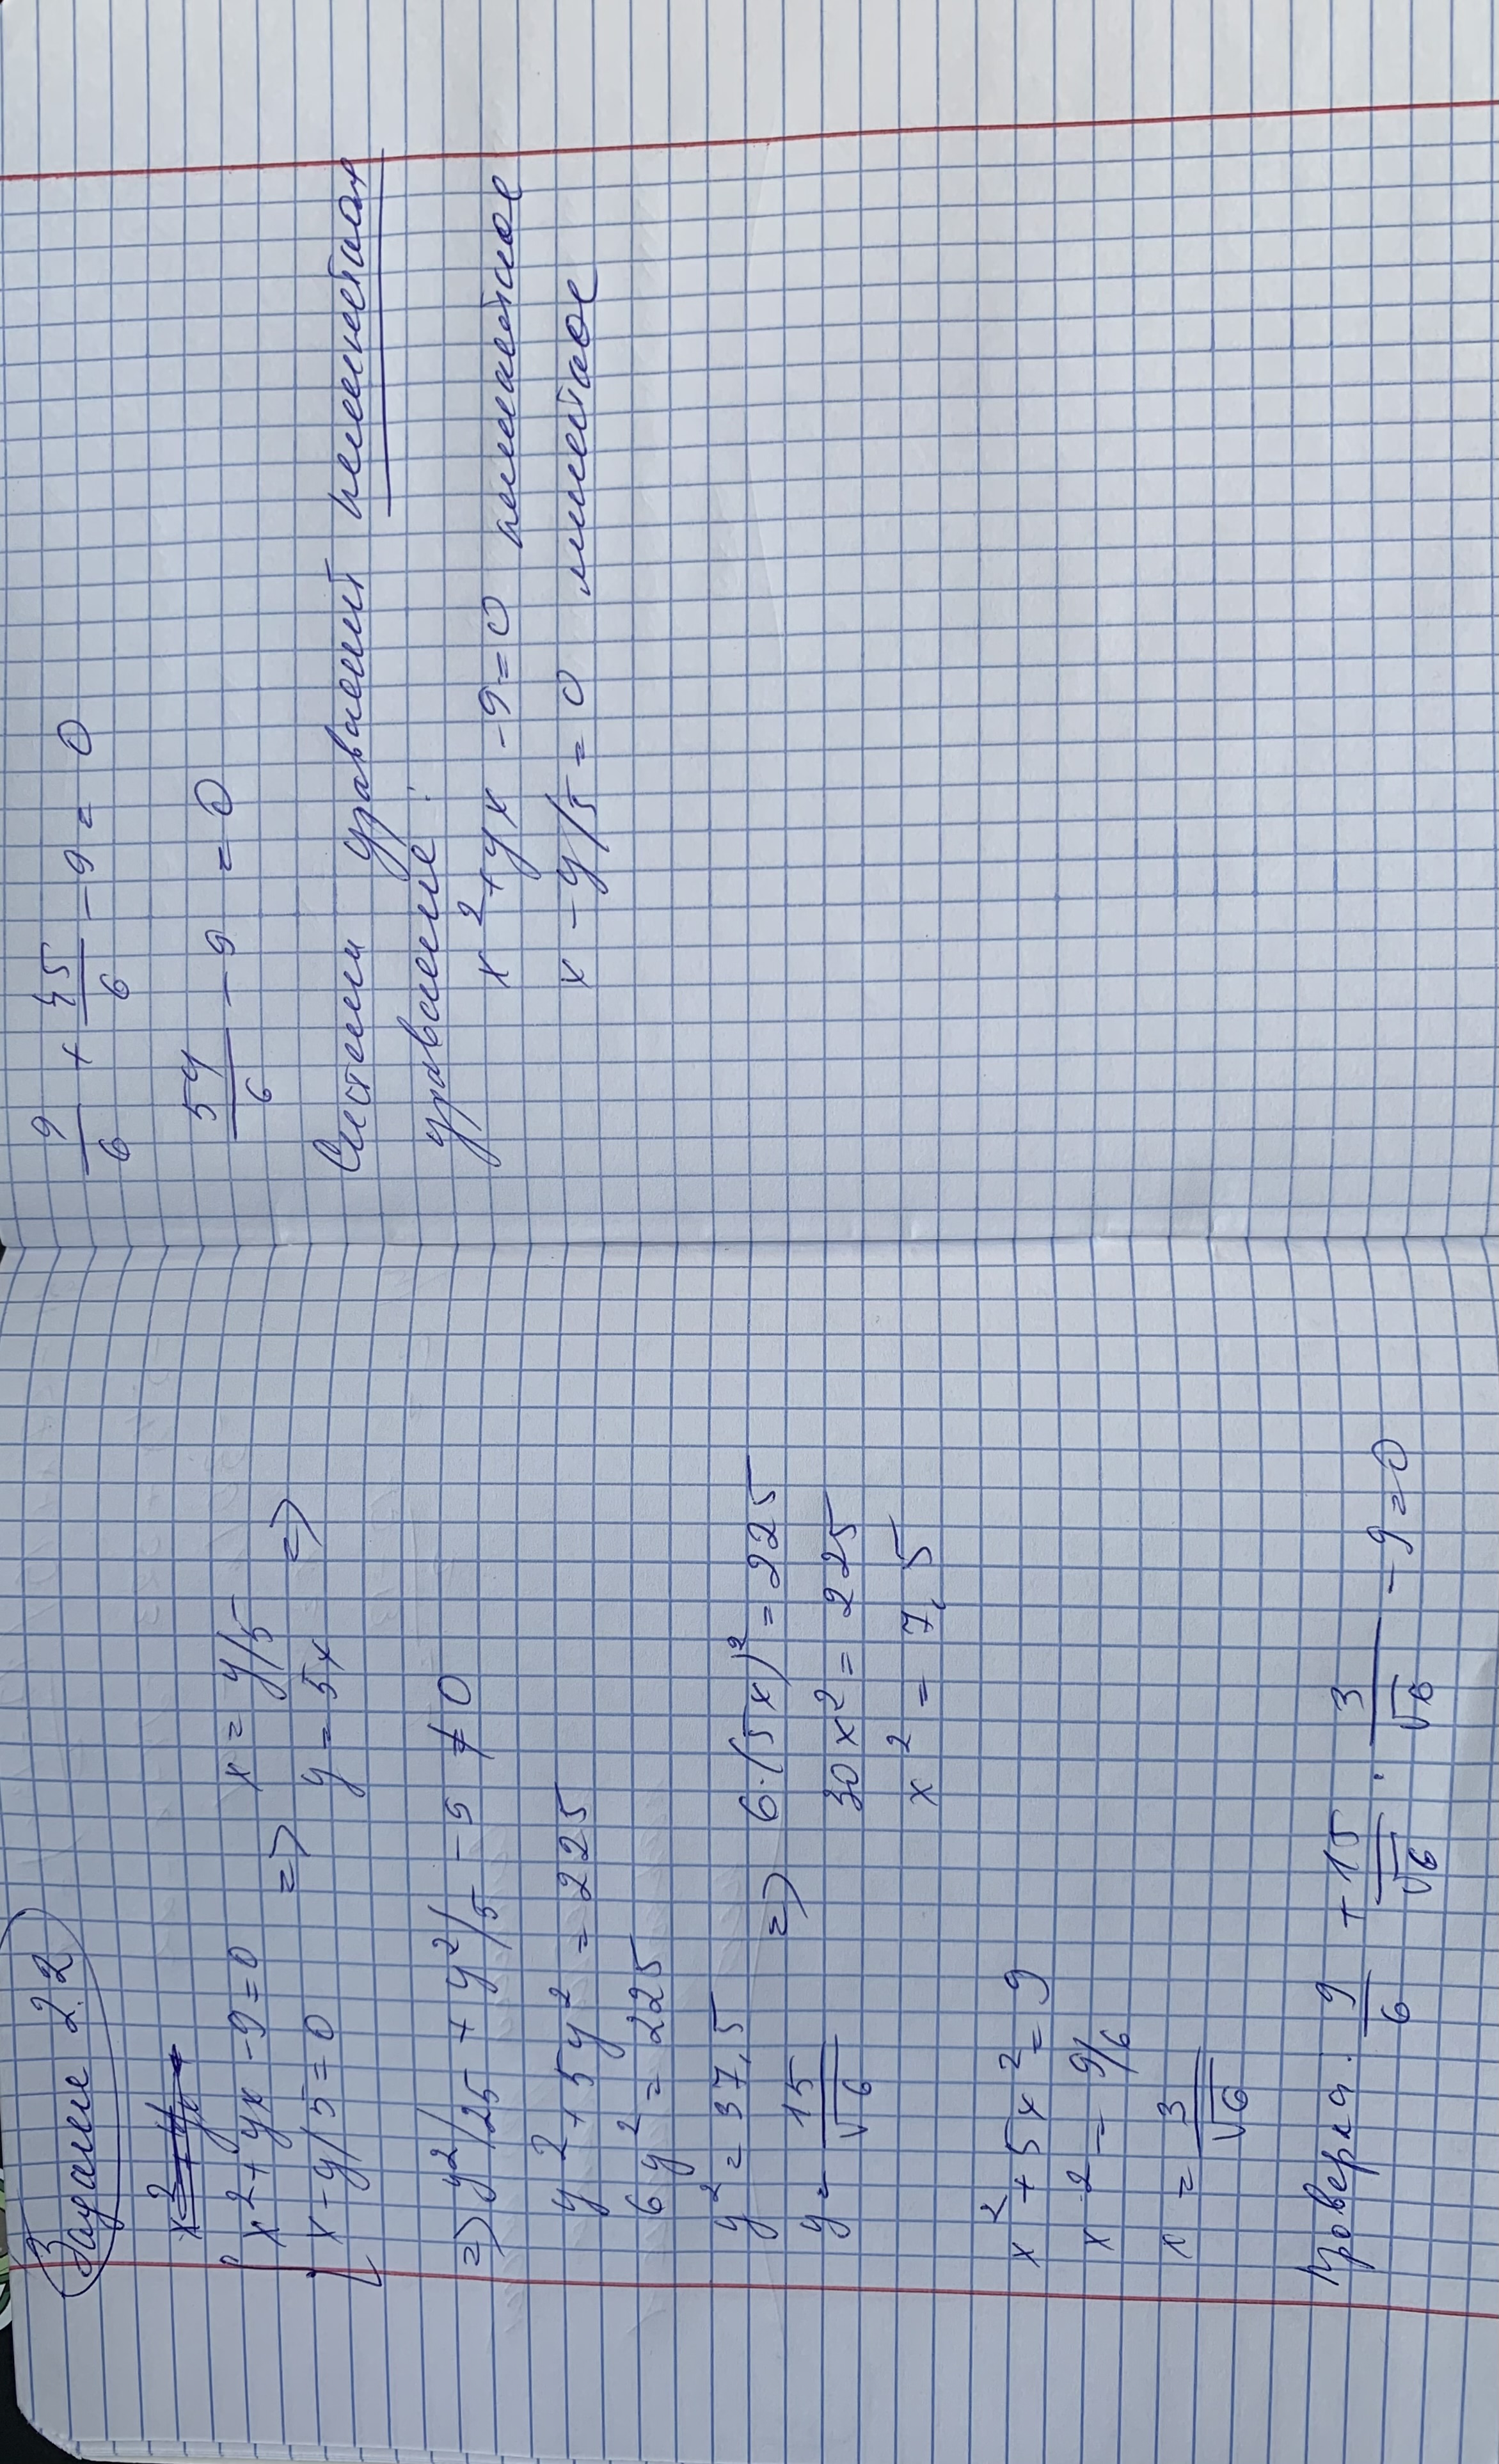 Задание 2.2
x² + yx
x² + yx - 9 = 0 => x = y/5
x - y/5 = 0 y = 5x =>
=> y²/25 + y²/5 - 5 ≠ 0
y² + 5y² = 225
6y² = 225
y² = 37,5
y = 15/√6 => 6·(5x)² = 225
30x² = 225
x² = 7,5
x² + 5x² = 9
x² = 9/6
x = 3/√6
Проверка: 9/6 + 15/√6 · 3/√6 - 9 = 0
9/6 + 45/6 - 9 = 0
54/6 - 9 = 0
Систем уравнений нелинейная
уравнение:
x² + yx - 9 = 0 нелинейное
x - y/5 = 0 линейное